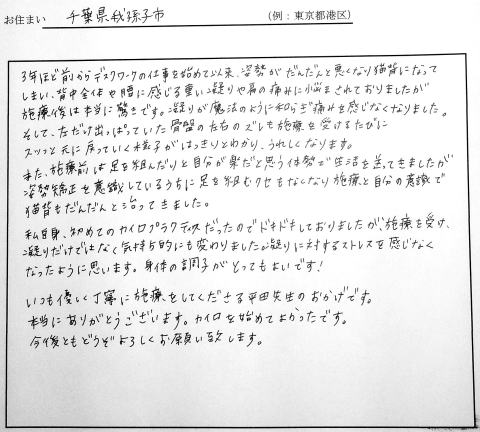 お住まい 千葉県我孫子市 (例：東京都港区)
3年ほど前からデスクワークの仕事を始めて以来、姿勢がだんだんと悪くなり猫背になって
しまい、背中全体や腰に感じる重い凝りや肩の痛みに悩まされておりましたが
施療後は本当に驚きです。凝りが魔法のように和らぎ痛みを感じなくなりました。
そして、ただけ出っぱっていた骨盤の左右のズレも施療を受けるたびに
スッッと元に戻っていく様子がはっきりとわかり、うれしくなります。
また、施療前は足を組んだりと自分が楽だと思う体勢で生活を送ってきましたが
姿勢矯正を意識しているうちに足を組むクセもなくなり施療と自分の意識で
猫背もだんだんと治ってきました。
私自身、初めてのカイロプラクティスだったのでドキドキしておりましたが、施療を受け、
凝りだけではなく気持ち的にも変わりました。凝りに対するストレスを感じなく
なったように思います。身体の調子がとってもよいです!
いつも優しく丁寧に施療をしてくださる平田先生のおかげです。
本当にありがとうございます。カイロを始めてよかったです。
今後ともどうぞよろしくお願い致します。